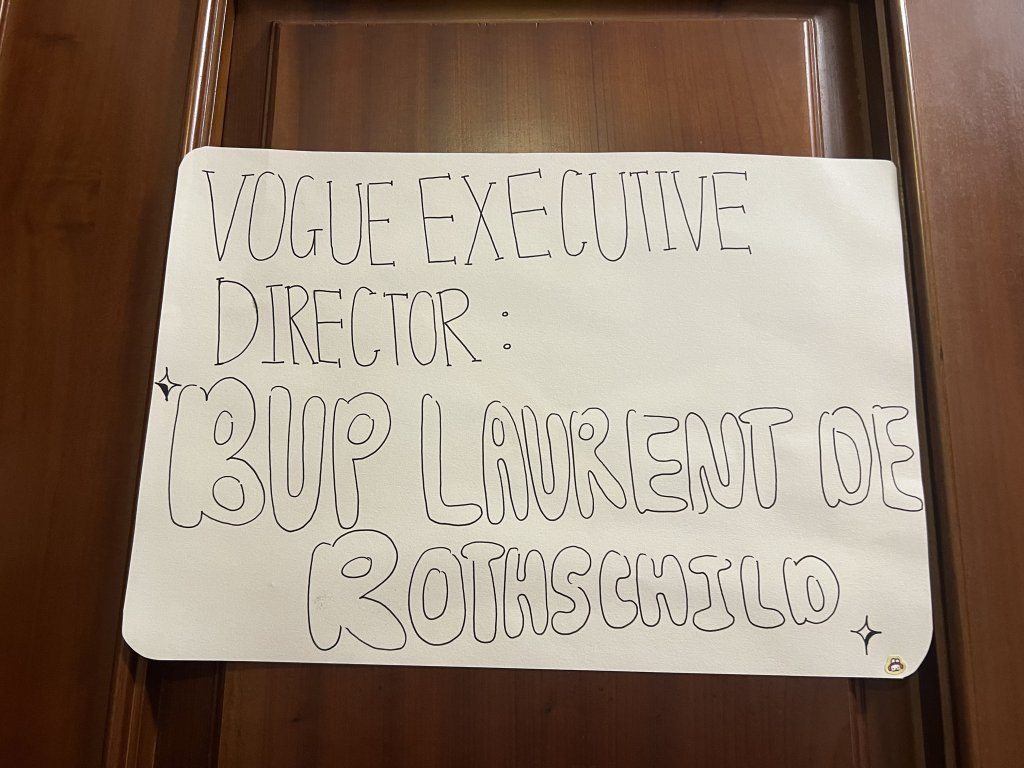 VOGUE EXECUTIVE
DIRECTOR :
BUP LAURENT DE
ROTHSCHILD